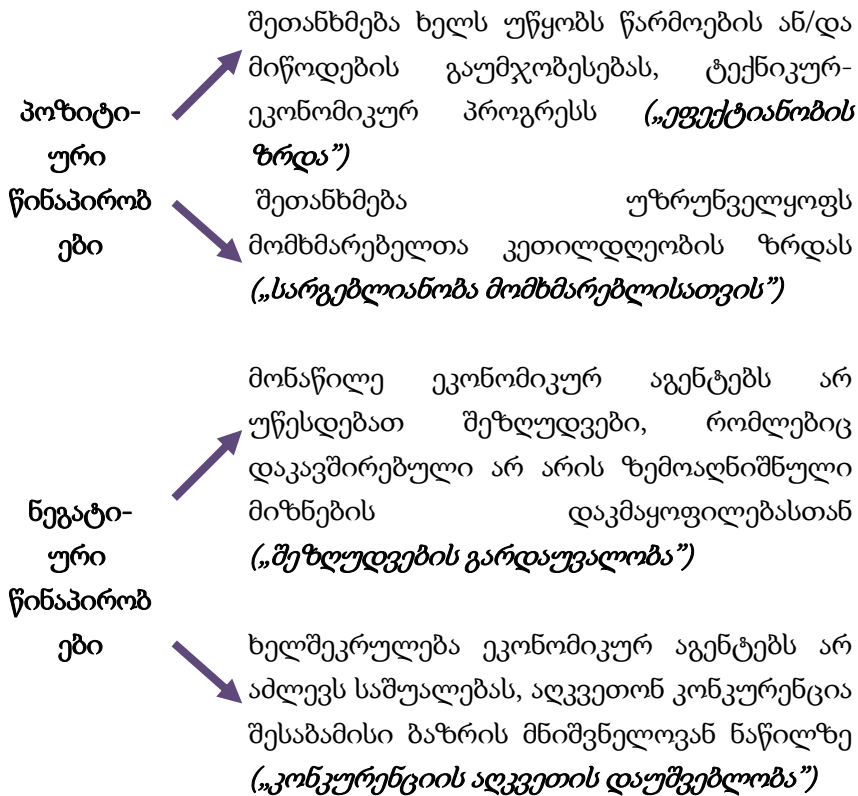 პოზიტი-
ური
წინაპირობ
ები
შეთანხმება ხელს უწყობს წარმოების ან/და
მიწოდების გაუმჯობესებას, ტექნიკურ-
ეკონომიკურ პროგრესს („ეფექტიანობის
ზრდა”)
შეთანხმება უზრუნველყოფს
მომხმარებელთა კეთილდღეობის ზრდას
(„სარგებლიანობა მომხმარებლისათვის”)
ნეგატი-
ური
წინაპირობ
ები
მონაწილე ეკონომიკურ აგენტებს არ
უწესდებათ შეზღუდვები, რომლებიც
დაკავშირებული არ არის ზემოაღნიშნული
მიზნების დაკმაყოფილებასთან
(„შეზღუდვების გარდაუვალობა”)
ხელშეკრულება ეკონომიკურ აგენტებს არ
აძლევს საშუალებას, აღკვეთონ კონკურენცია
შესაბამისი ბაზრის მნიშვნელოვან ნაწილზე
(„კონკურენციის აღკვეთის დაუშვებლობა”)